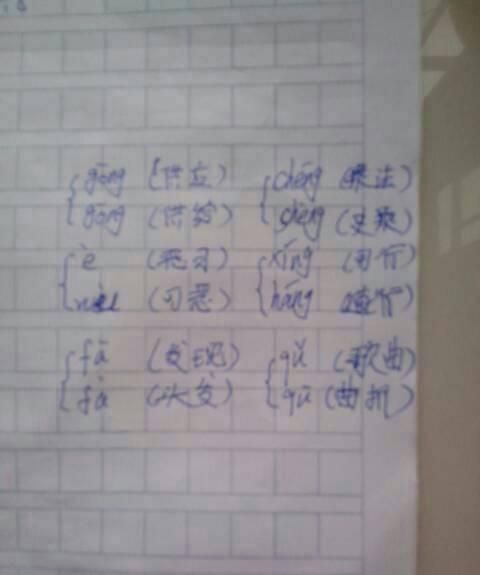 gōng (供应) chéng (乘法)
gòng (供给) shèng (史乘)
è (恶习) xíng (可行)
wù (可恶) háng (行)
fā (发现) qǔ (歌曲)
fà (头发) qū (曲折)